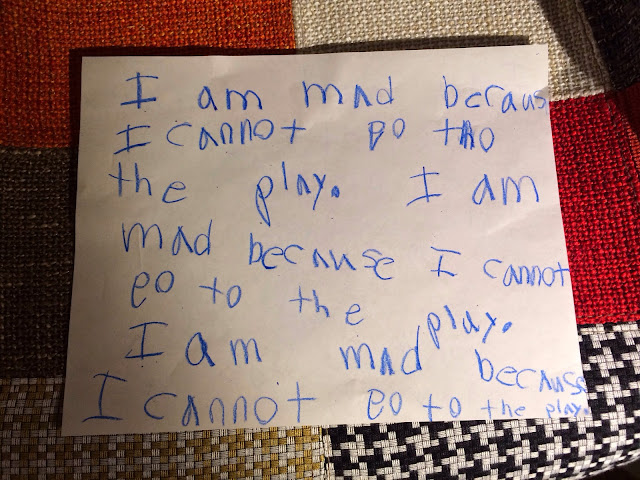 I am mad becaus
I cannot go to
the play. I am
mad because I cannot
go to the
play.
I am mad because
I cannot go to the play.